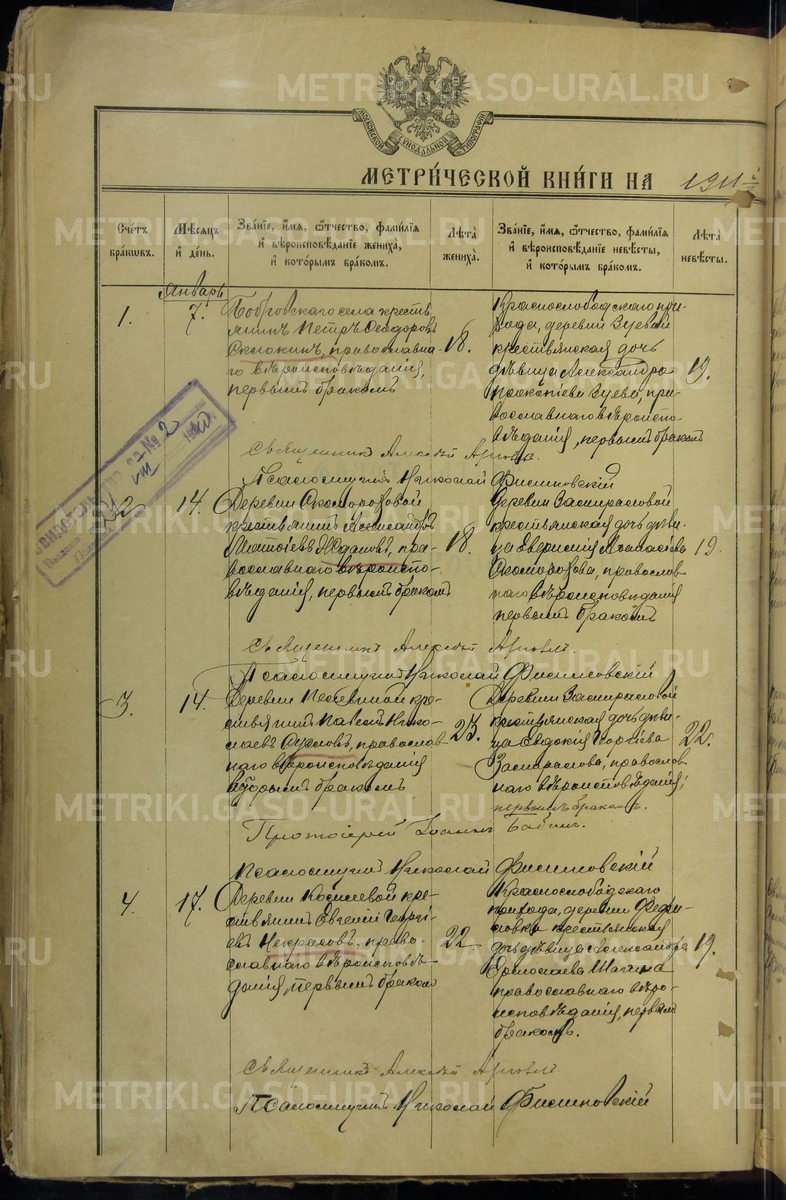 МОСКОВСКОЙ СѴНОДАЛЬНОЙ ТИПОГРАФІИ
МЕТРИ́ЧЕСКОЙ КНИ́ГИ НА 1911 й
Сче́тъ бра́кѡвъ.
Мѣсѧцъ и҆ де́нь.
Зва́нїе, и҆́мѧ, ѻ҆́тчество, фамѝлїѧ и҆ вѣроисповѣ́данїе жениха̀, и҆ кото́рымъ бра́комъ.
Лѣ́та жениха̀.
Зва́нїе, и҆́мѧ, ѻ҆́тчество, фамѝлїѧ и҆ вѣроисповѣ́данїе невѣ́сты, и҆ кото́рымъ бра́комъ.
Лѣ́та невѣ́сты.
Январь
1.
7.
Бобровскаго села кресть
янинъ Петръ Ѳеодоровъ
православна
го вѣроисповѣданія,
первымъ бракомъ
18.
Краснослободскаго при
хода, деревни Зуевой
крестьянская дочь
дѣвица Александра
Прокопіева Зуева, пра
вославнаго вѣроиспо
вѣданія, первымъ бракомъ
19.
Священникъ Алексѣй
Псаломщикъ Николай
2
14.
Деревни Скоморохової
крестьянинъ Александръ
Ждановъ, пра
вославнаго вѣроиспо
вѣданія, первымъ бракомъ
18.
Деревни
крестьянская дочь дѣви
ца
Скоморохова, православ
наго вѣроисповѣданія
первымъ бракомъ
19.
Священникъ Алексѣй
Псаломщикъ Николай
3.
14.
Деревни кре
стьянинъ Павелъ Нико
лаевъ православ
наго вѣроисповѣданія
вторымъ бракомъ
23.
Деревни
крестьянская дочь дѣви
ца Евдокія Георгіева
православ
наго вѣроисповѣданія,
первымъ бракомъ.
22.
Протоіерей Іоаннъ Бабинъ.
Псаломщикъ Николай
4.
17.
Деревни кре
стьянинъ Евгеній Георгі
евъ Некрасовъ, право
славнаго вѣроисповѣ
данія, первымъ бракомъ
22
Краснослободскаго
прихода, деревни
крестьянская
дочь дѣвица Александра
Ермолаева
православнаго вѣро
исповѣданія, первымъ
бракомъ.
19.
Священникъ Алексѣй
Псаломщикъ Николай
METRIKI.GASO-URAL.RU